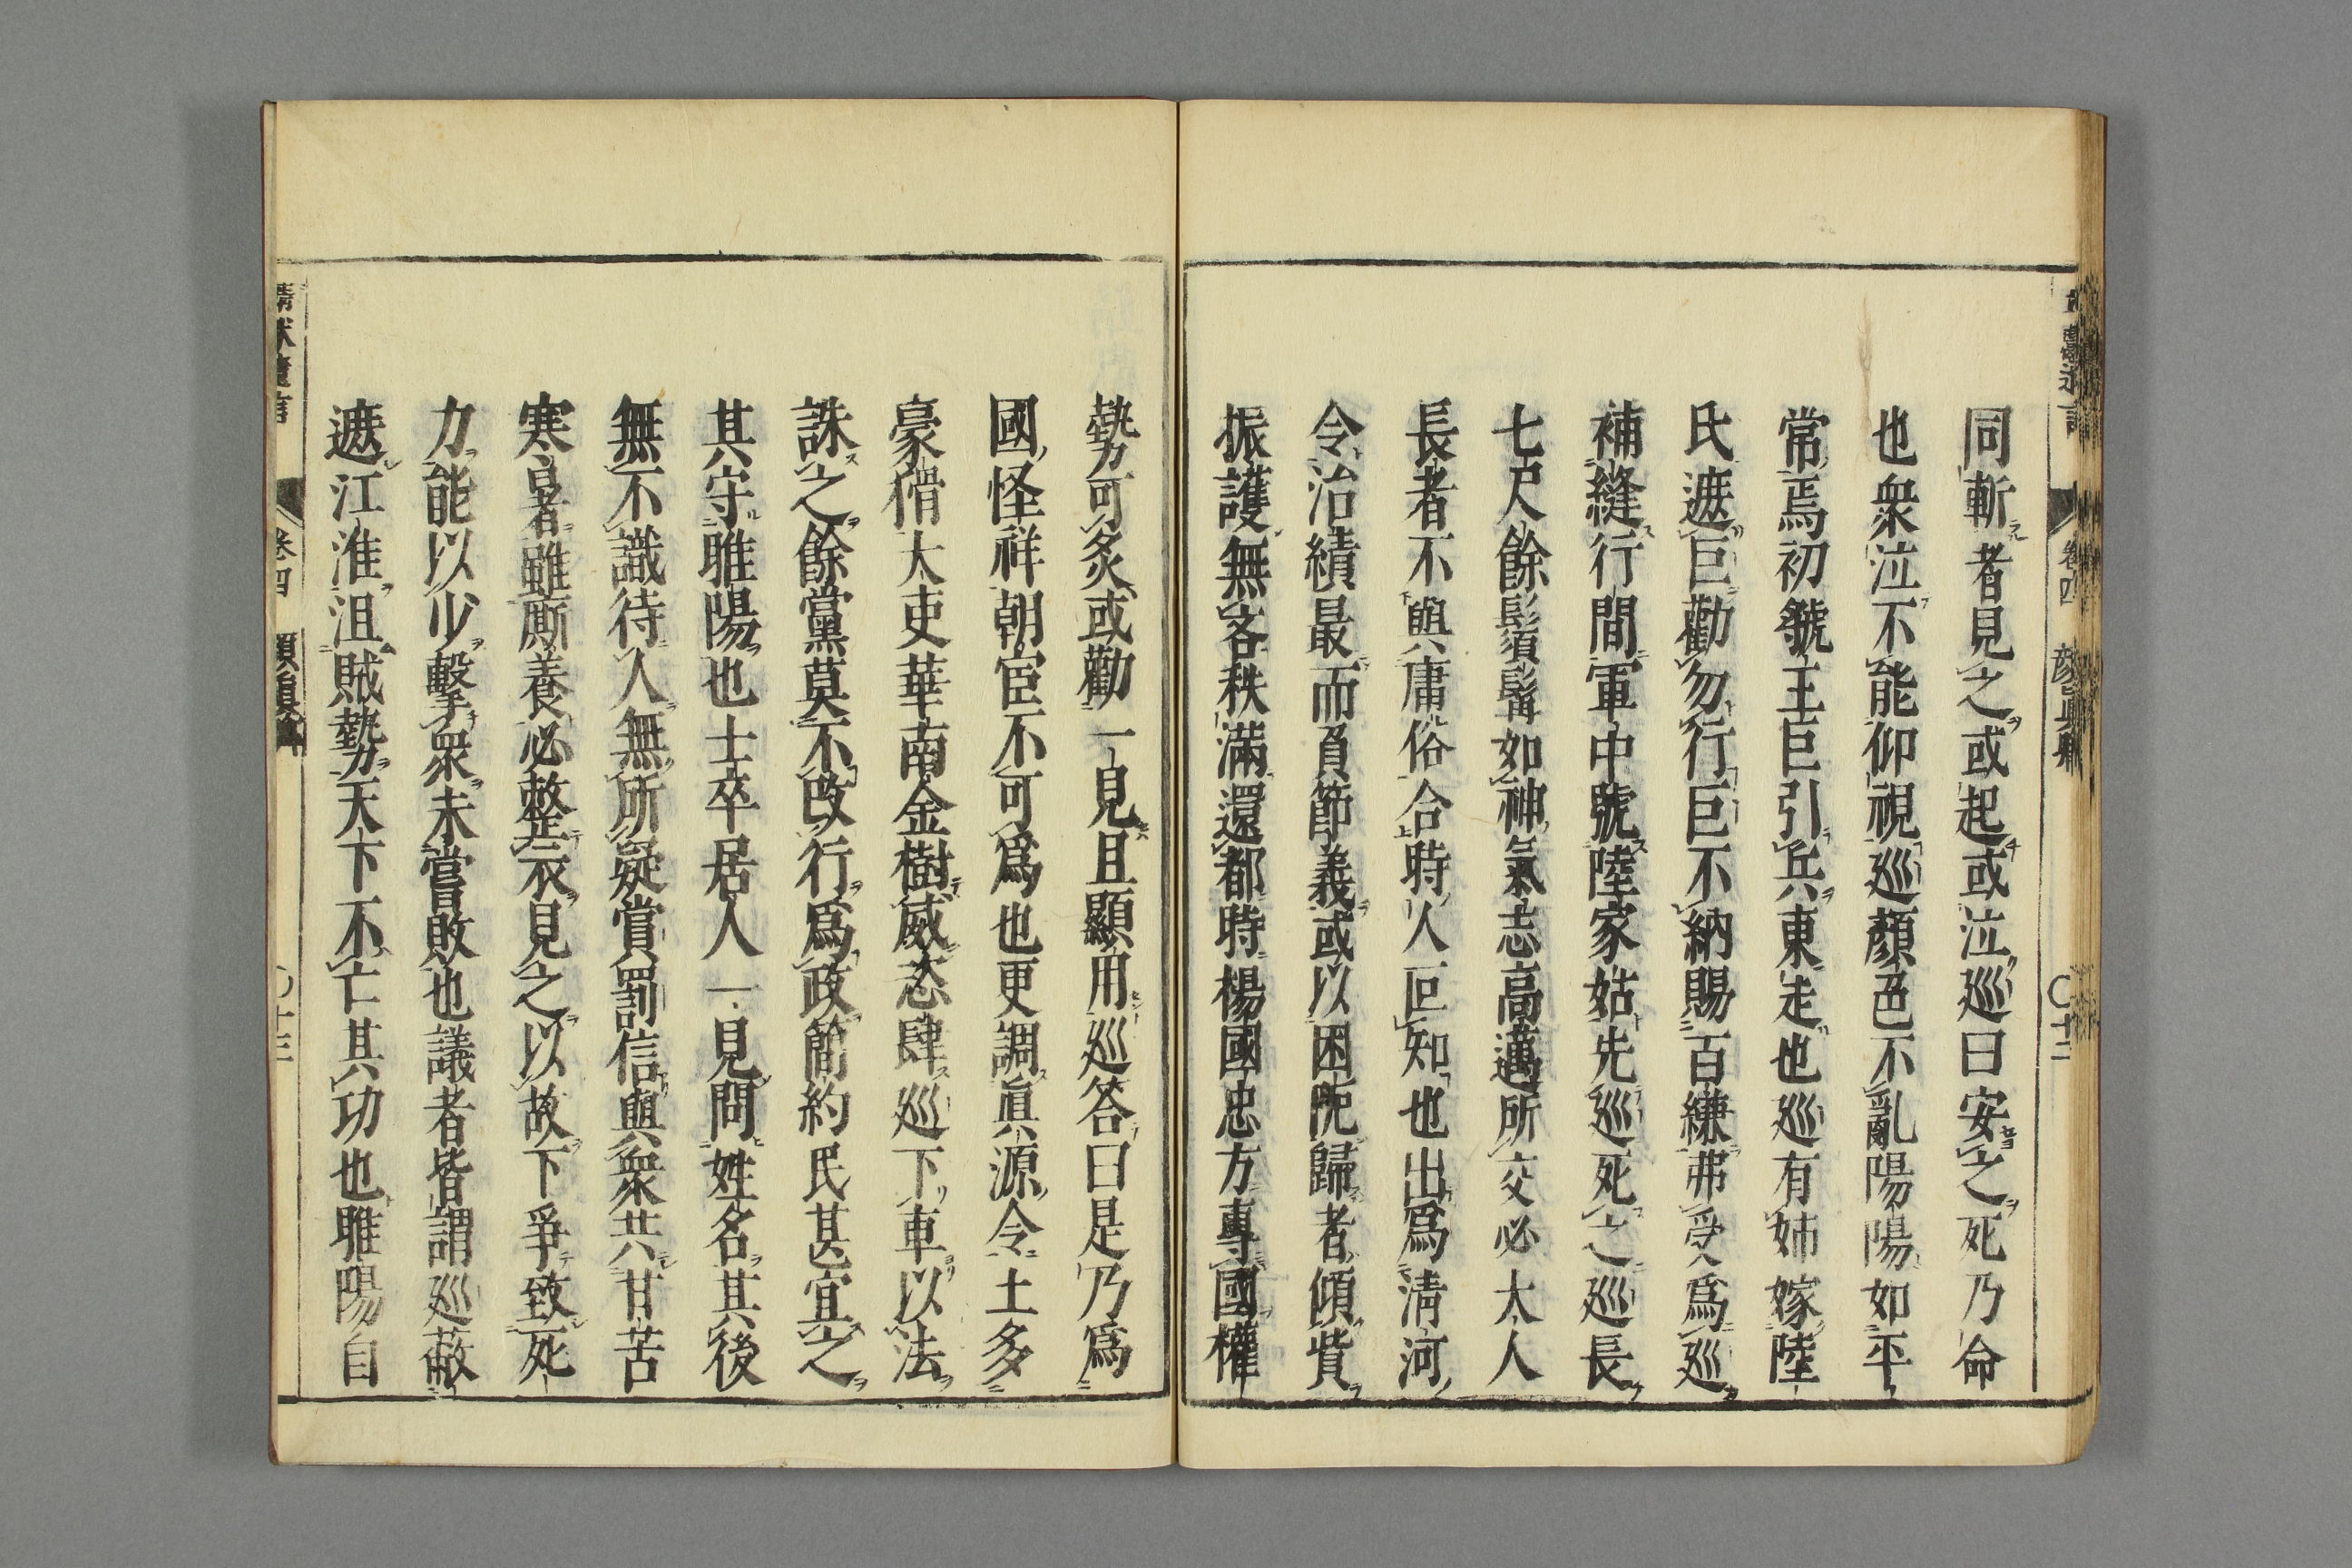 同斬者見之或起或泣巡曰安之死乃命
也衆泣不能仰視巡顏色不亂陽陽如平
常焉初虢王巨引兵東走也巡有姉嫁陸
氏遮巨勸勿行巨不納賜百縑弗受爲巡
補縫行間軍中號陸家姑先巡死之巡長
七尺餘鬚髯如神氣志高邁所交必大人
長者不與庸俗合時人叵知也出爲淸河
令治績最而負節義或以困阨歸者傾貲
振護無吝秩滿還都時楊國忠方專國權
勢可炙或勸一見且顯用巡答曰是乃爲
國怪祥朝宦不可爲也更調眞源令土多
豪猾大吏華南金樹威恣肆巡下車以法
誅之餘黨莫不改行爲政簡約民甚宜之
其守睢陽也士卒居人一見問姓名其後
無不識待人無所疑賞罰信與衆共甘苦
寒暑雖厮養必整衣見之以故下爭致死
力能以少擊衆未嘗敗也議者皆謂巡蔽
遮江淮沮賊勢天下不亡其功也睢陽自
卷四
十三
卷四
十二